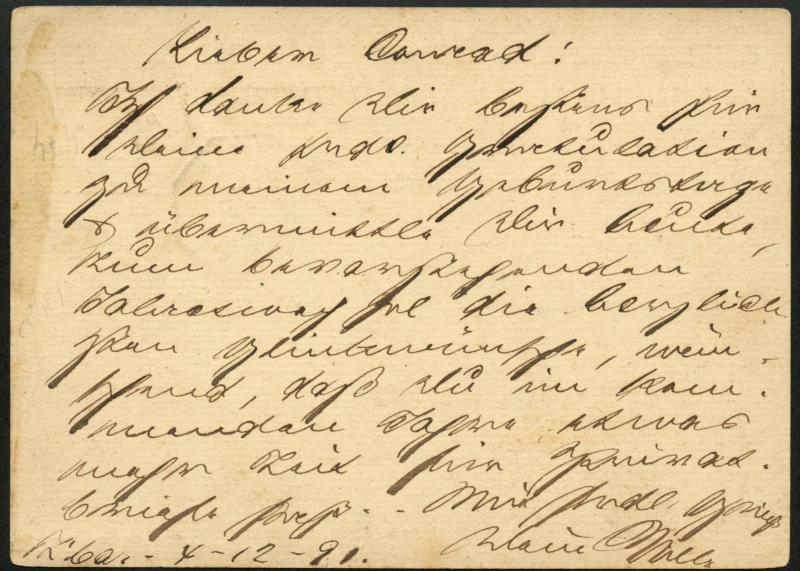 Lieber Conrad!
Ich danke Dir bestens für
Deine frdl. Gratulation
zu meinem Geburtstage
& übermittle Dir heute,
zum bevorstehenden
Jahreswechsel die herzlich
sten Glückwünsche, wün-
schend, daß Du im kom-
menden Jahre etwas
mehr Zeit für Privat-
briefe hast. - Mit frdl. Gruß
Dein
4-12-91.